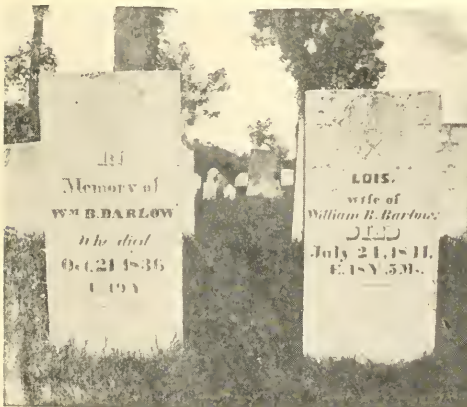 In
Memory of
Wm B. BARLOW
Who died
Oct. 21 1836
LOIS.
wife of
William B. Barlow,
DIED
July 24, 1841.